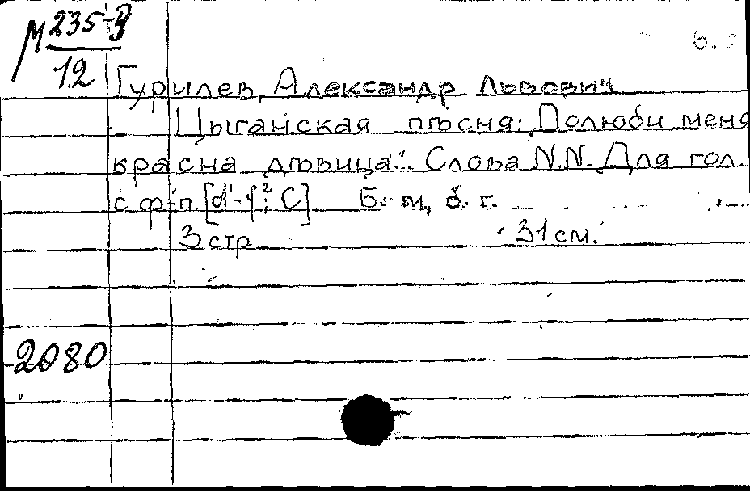 М 235-
12
Гурилев, Александр Львович
Цыганская пѣсня: "Полюби меня
красна дѣвица". Слова N.N. Для гол.
с ф-п [d¹-f²; C] Б. м., б. г.
3 стр 31 см.
2080